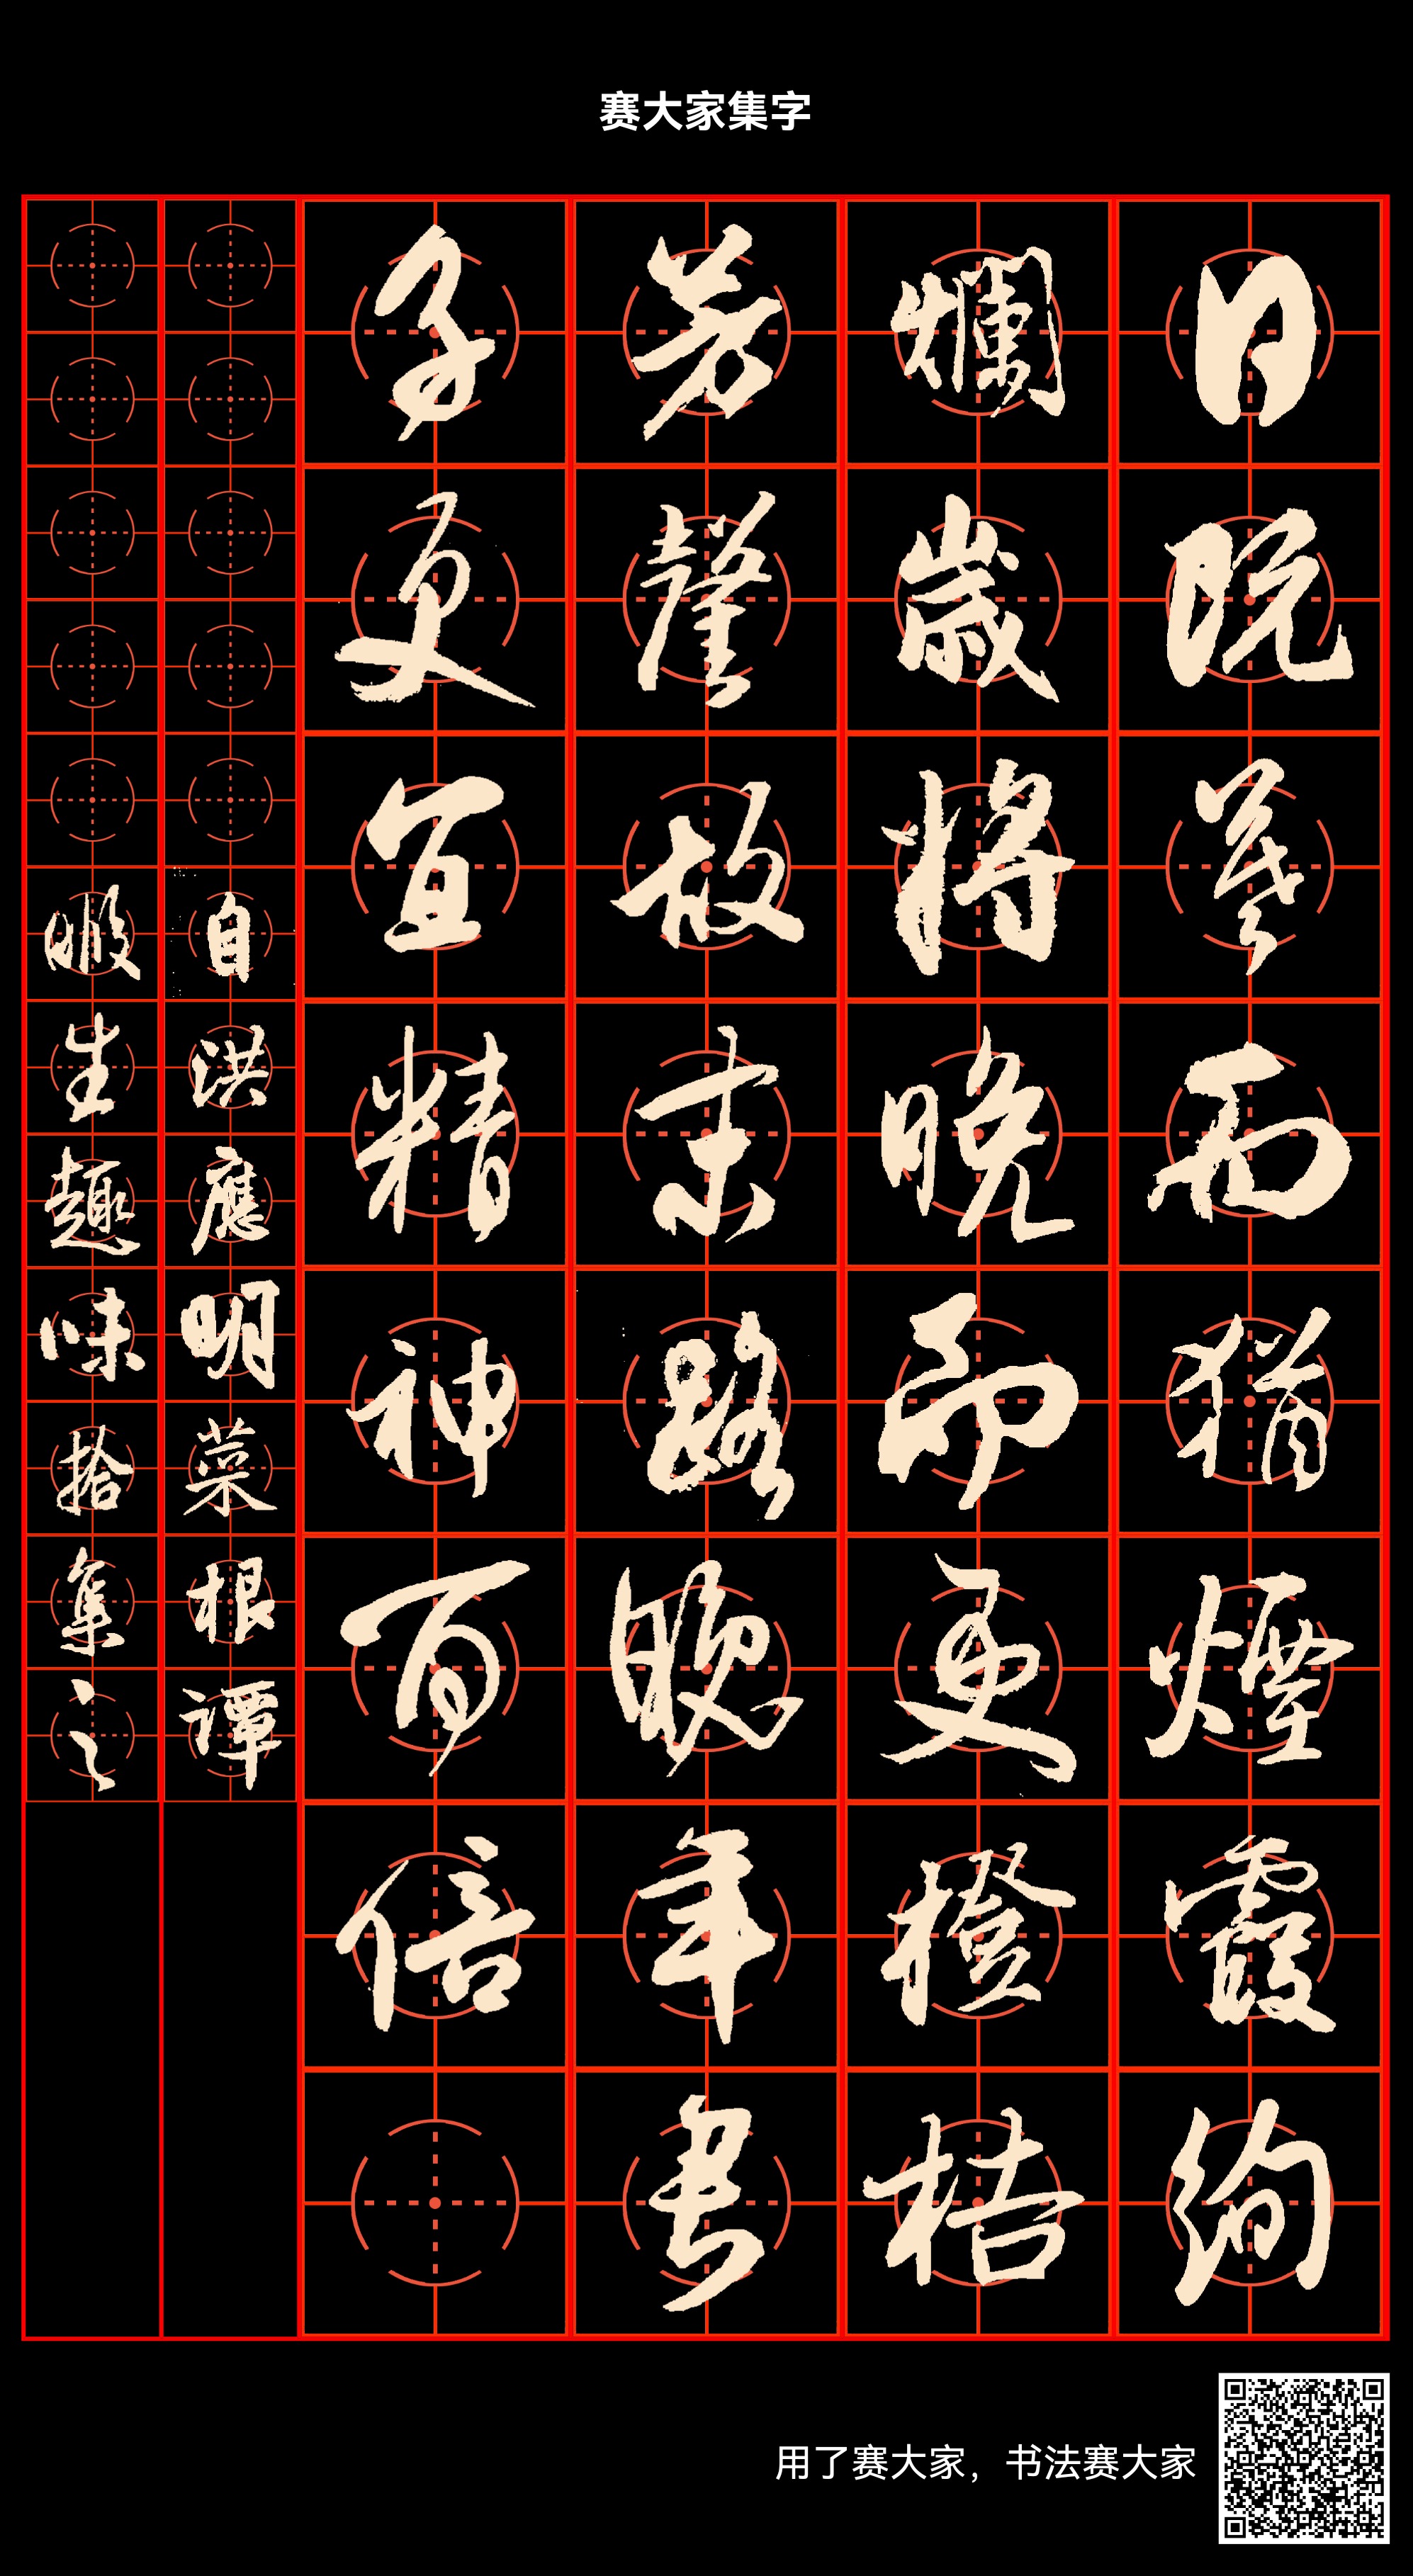 赛大家集字
日既暮而猶煙霞絢
爛歲將晚而更橙桔
芳馨故末路晚年君
子更宜精神百倍
自洪應明菜根譚
暇生趣味拾集之
用了赛大家，书法赛大家